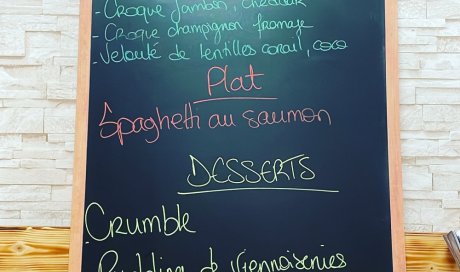 - Croque jambon, cheddar
- Croque champignon fromage
- Velouté de lentilles corail, coco
Plat
Spaghetti au saumon
DESSERTS
Crumble
Pudding de Viennoiseries